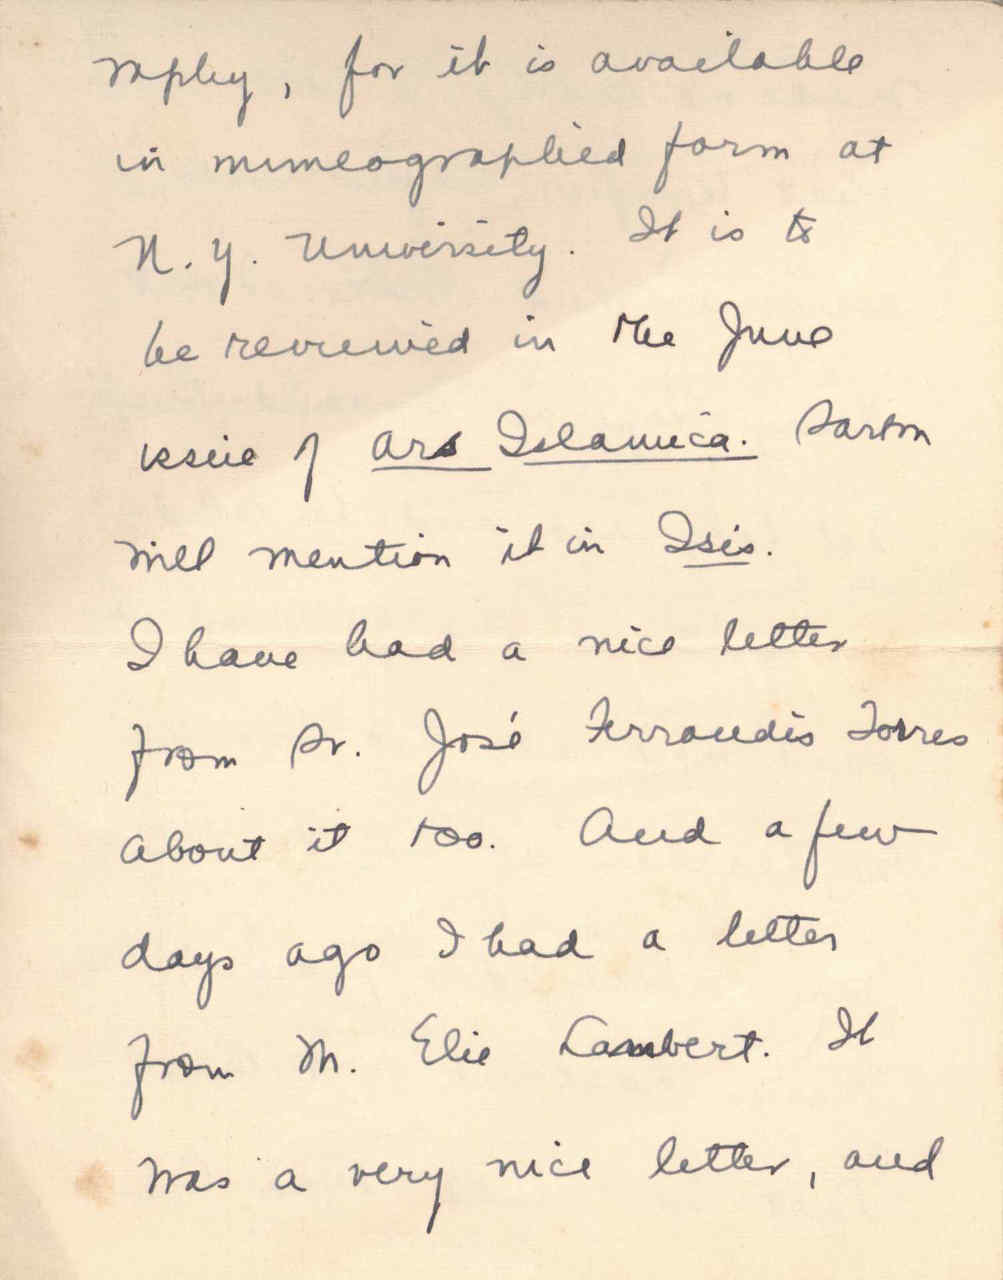 raphy, for it is available
in mimeographed form at
N.Y. University. It is to
be reviewed in the June
issue of Ars Islamica. Sarton
will mention it in Isis.
I have had a nice letter
from Sr. José Ferrandis Torres
about it too. And a few
days ago I had a letter
from M. Elie Lambert. It
was a very nice letter, and